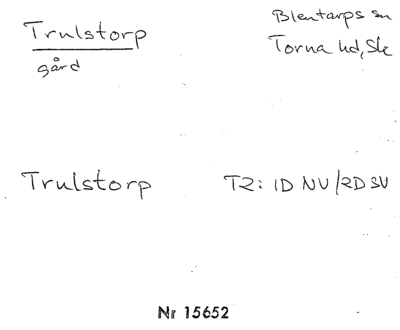 Trulstorp
gård
Blentarps sn
Torna hd, Sk
Trulstorp
T2: 1D NV/2D SV
Nr 15652